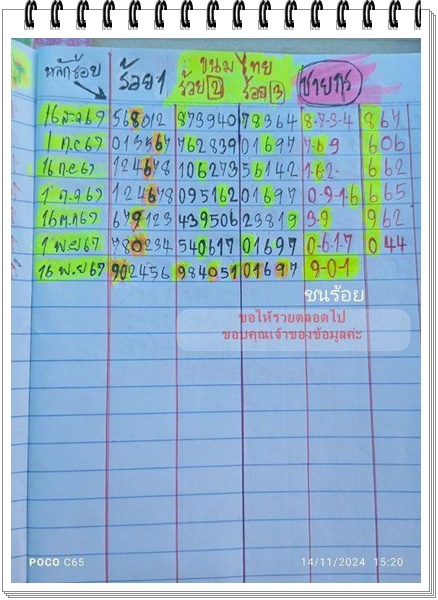 หลักร้อย ร้อย 1 ขนมไทย ชายกร
ร้อย 2 ร้อย 3
16 ส.ค 67 568012 873940 78364 8-7-3-4 867
1 ก.ย 67 013567 762839 01697 7-6 9 606
16 ก.ย 67 124678 106273 56142 1-6-2- 662
1 ต.ค 67 124678 095162 01697 0-9-16 665
16 ต.ค 67 679123 439506 23819 3-9 962
1 พ.ย 67 780234 540617 01697 0-6-1-7 044
16 พ.ย 67 902456 984051 01697 9-0-1
ชนร้อย
ขอให้รวยตลอดไป
ขอบคุณเจ้าของข้อมูลค่ะ
POCO C65 14/11/2024 15:20